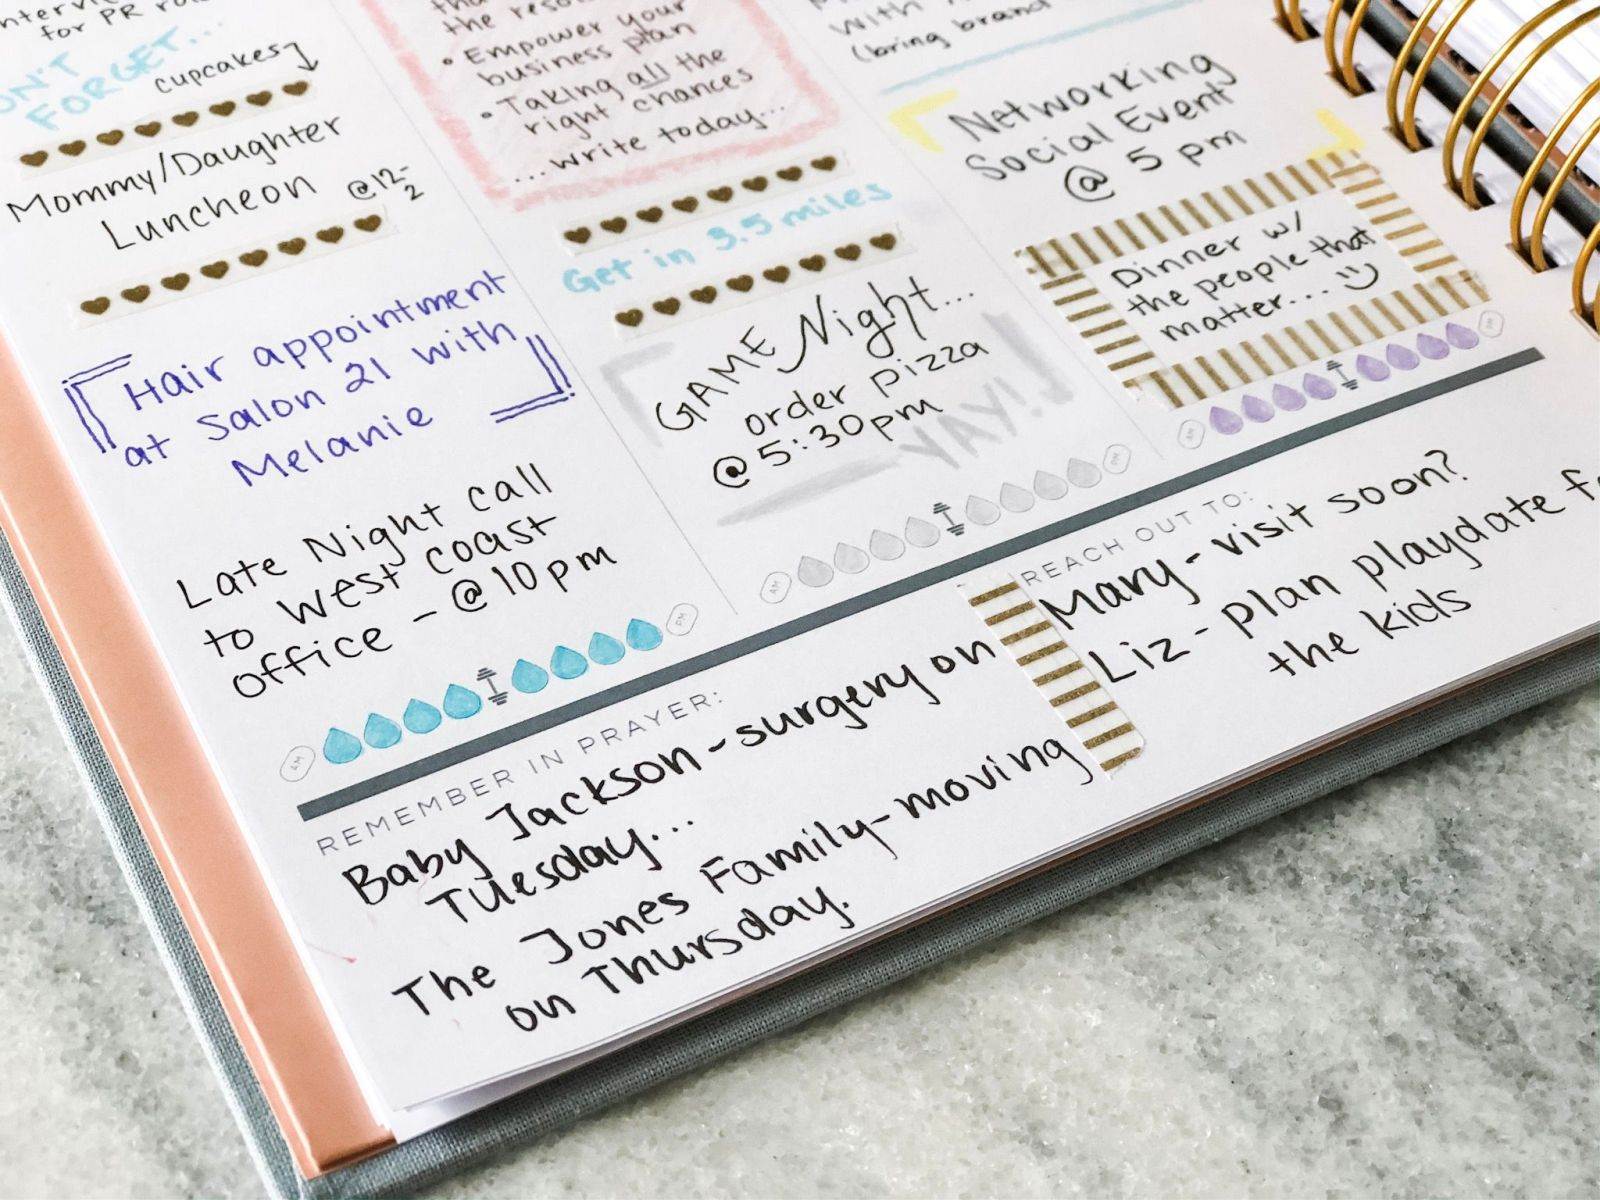 for PR
FORGET...
cupcakes
Mommy/Daughter
Luncheon @12-
2
Hair appointment
at Salon 21 with
Melanie
Late Night call
to West coast
office - @10pm
AM
PM
the
• Empower your
business plan
• Taking all the
right chances
...write today...
Get in 3.5 miles
GAME Night...
order pizza
@ 5:30pm
YAY!
AM
PM
with
(bring brand
Networking
Social Event
@ 5 pm
Dinner w/
the people that
matter... :)
AM
PM
REMEMBER IN PRAYER:
Baby Jackson - surgery on
Tuesday...
The Jones Family - moving
on Thursday.
REACH OUT TO:
Mary - visit soon?
Liz - plan playdate
the kids